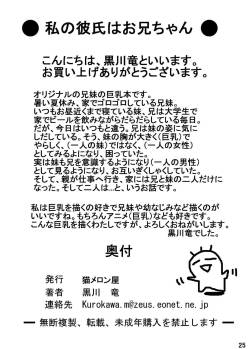 ● 私の彼氏はお兄ちゃん ●
こんにちは、黒川竜といいます。
お買い上げありがとうございます。
オリジナルの兄妹の巨乳本です。
暑い夏休み、家でゴロゴロしている兄妹。
いつもお昼近くまで寝ている妹、兄は大学生で
家でビールを飲みながらだらだらしている毎日。
だが、今日はいつもと違う。兄は妹の姿に気に
しだしている。そう、妹の胸が大きく(巨乳)で
やらしく、(一人の妹)ではなく、(一人の女性)
としてみるようになり、困っていた。
実は妹も兄を意識するようになり(一人の男性)
として見るようになり、お互いぎくしゃくしていた。
そして、親が仕事へ行き、家には兄と妹の二人だけに
なった。そして二人は…と、いうお話です。
私は巨乳を描くのが好きで兄妹や幼なじみなど描くのが
いいですね。もちろんアニメ(巨乳)なども好きです。
こんな巨乳を描くわたしですが、よろしくおねがいします。
黒川竜でした。
奥付
発行 猫メロン屋
著者 黒川 竜
連絡先 Kurokawa.m@zeus.eonet.ne.jp
― 無断複製、転載、未成年購入を禁止します ―
25